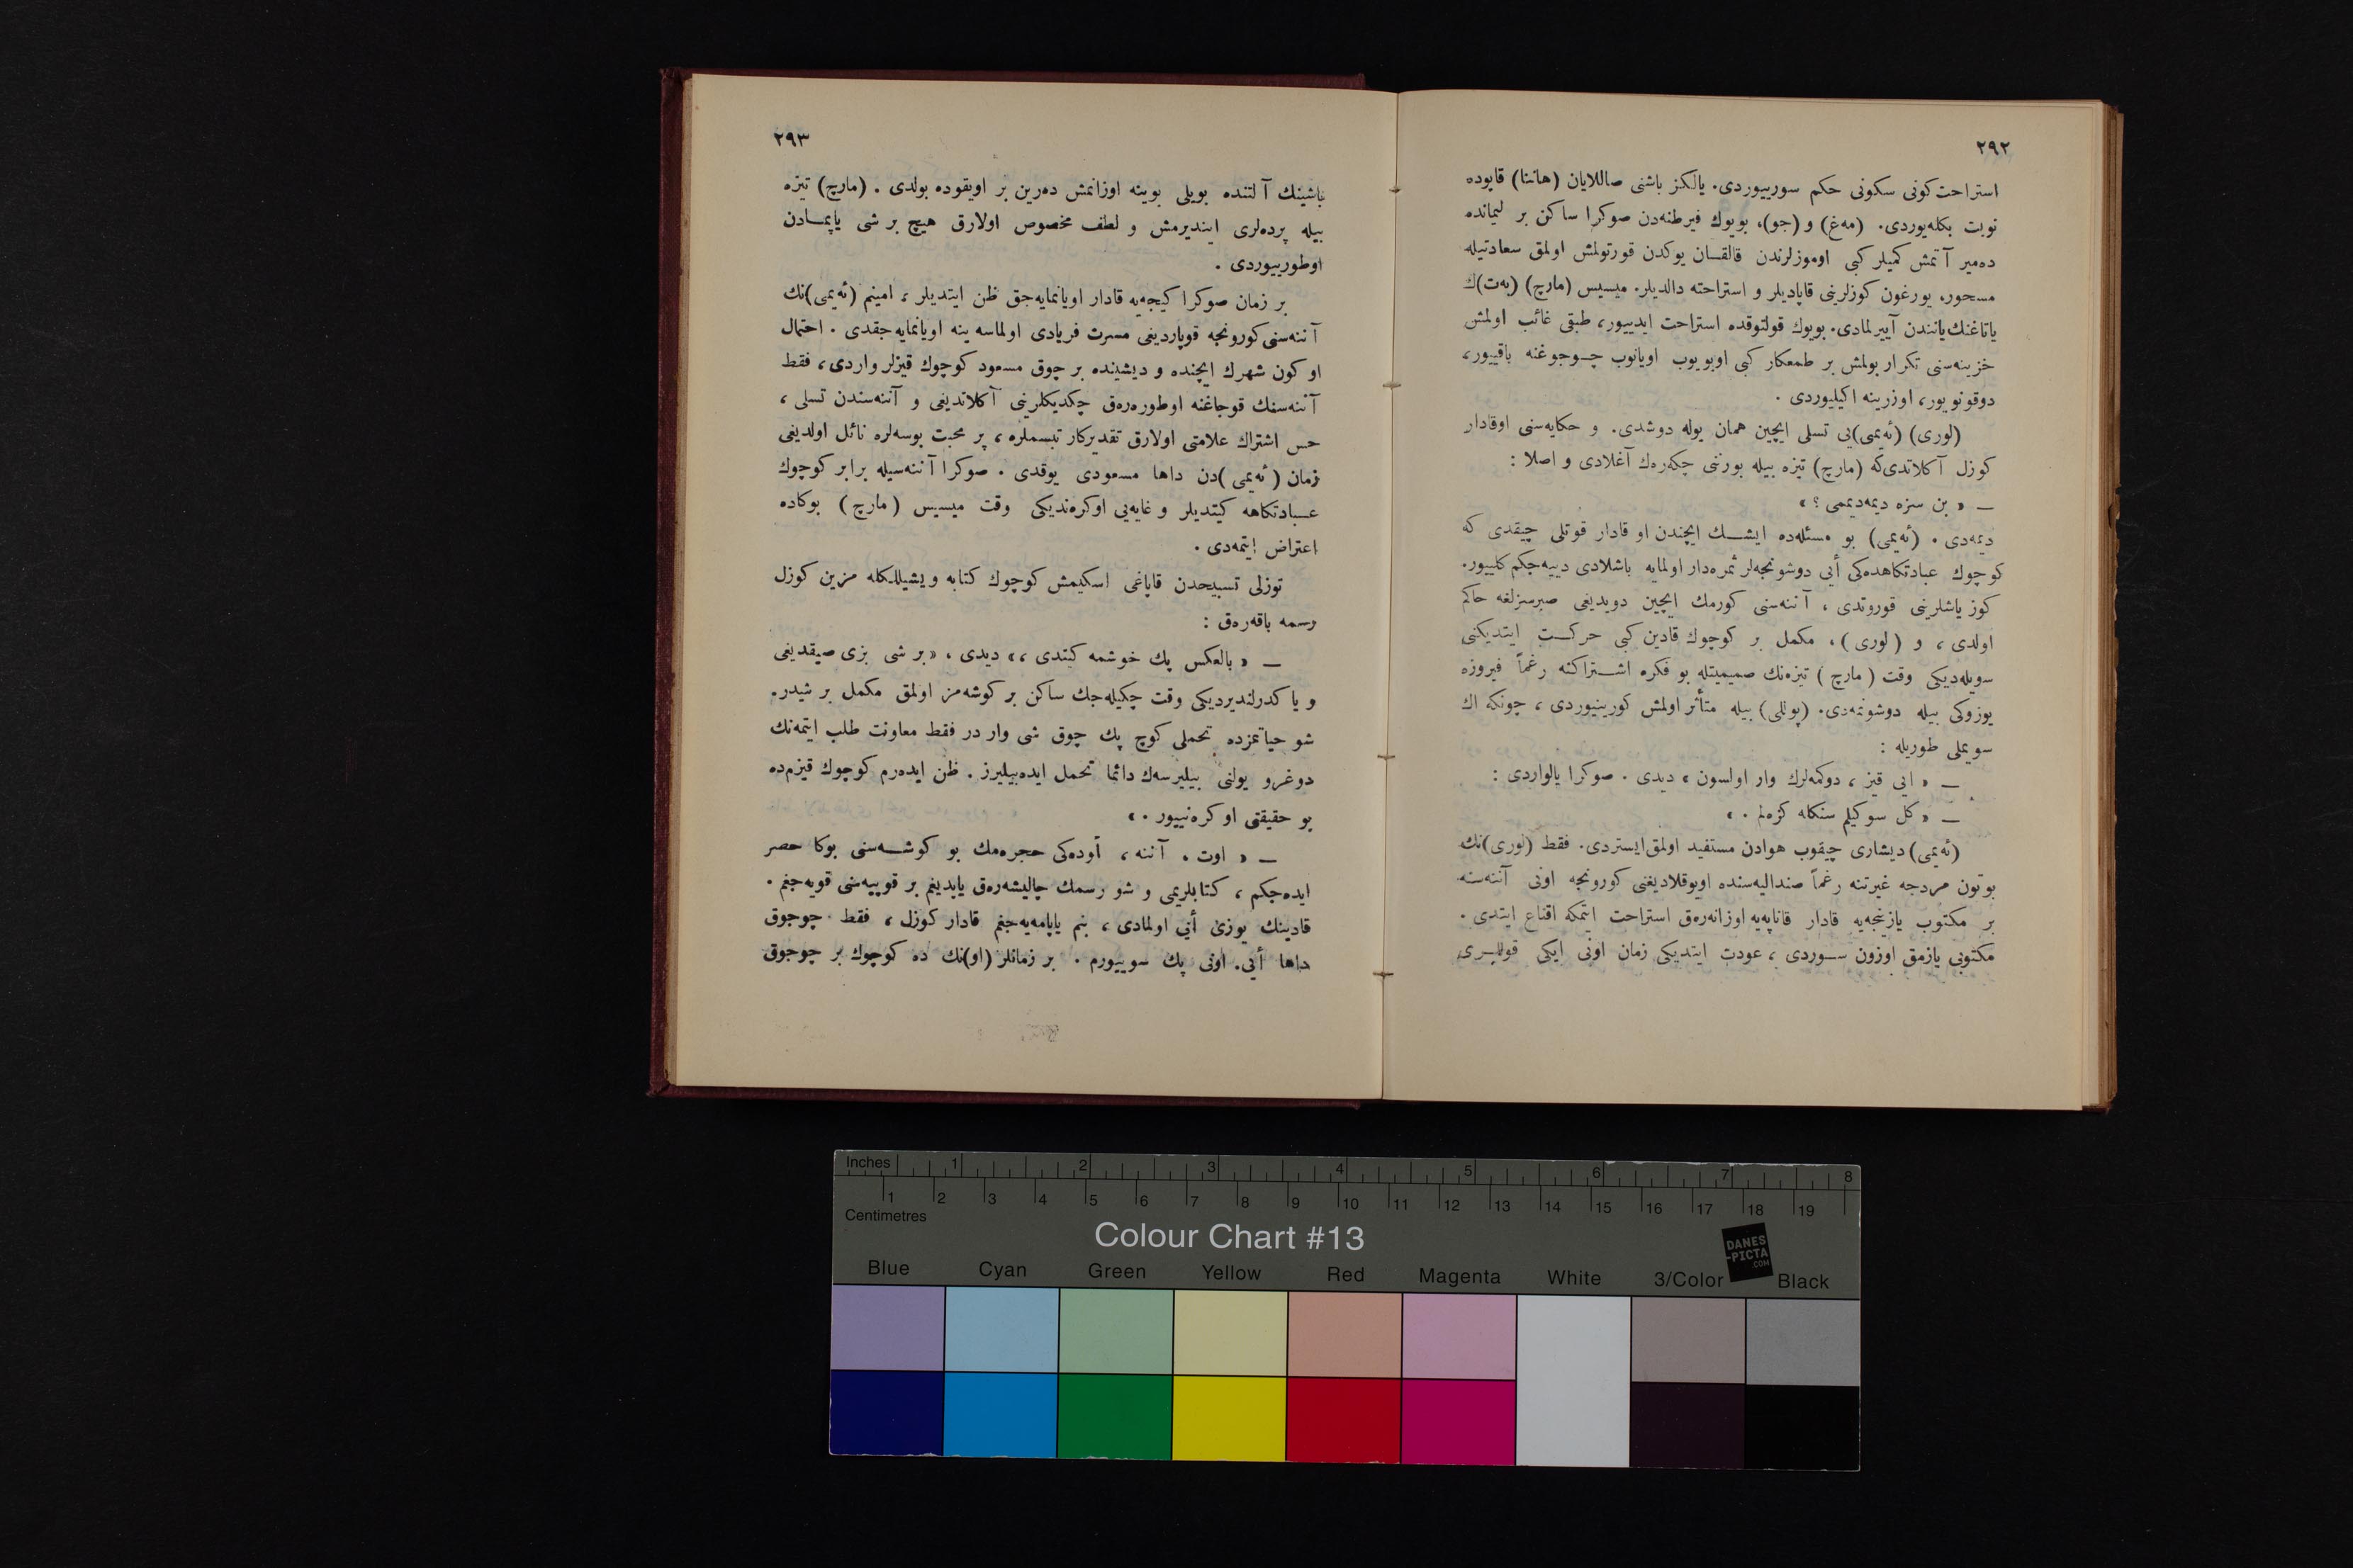 ٢٩٢
استراحت کونی سکونی حکم سورییوردی. یالکز باشنی صاللایان (هاننا) قاپوده
نوبت بکله‌یوردی. (مه‌غ) و (جو)، بویوك فیرطنه‌دن صوکرا ساکن بر لیمانده
ده‌میر آتمش کمیلر کبی اوموزلرندن قالقان یوکدن قورتولمش اولمق سعادتیله
مسحور، یورغون کوزلرینی قاپادیلر و استراحته دالدیلر. میسیس (مارچ) (به‌ت)ك
یاتاغنك یانندن آییرلمادی. بویوك قولتوقده استراحت ایدییور، طبقی غائب اولمش
خزینه‌سنی تکرار بولمش بر طمعکار کبی اویویوب اویانوب چوجوغنه باقییور،
دوقونویور، اوزرینه اکیلیوردی .
(لوری) (ئه‌یمی)یی تسلی ایچین همان یوله دوشدی. و حکایه‌سنی اوقادار
کوزل آکلاتدی‌که (مارچ) تیزه بیله بورننی چکه‌رك آغلادی و اصلا :
— « بن سزه دیمه‌دیممی ؟ »
دیمه‌دی . (ئه‌یمی) بو مسئله‌ده ایشك ایچندن او قادار قوتلی چیقدی که
کوچوك عبادتکاهده‌کی أیی دوشونجه‌لر ثمره‌دار اولمایه باشلادی دییه‌جکم کلییور.
کوز یاشلرینی قوروتدی ، آننه‌سنی کورمك ایچین دویدیغی صبرسزلغه حاکم
اولدی ، و (لوری) ، مکمل بر کوچوك قادین کبی حرکت ایتدیکنی
سویله‌دیکی وقت (مارچ) تیزه‌نك صمیمیتله بو فکره اشتراکنه رغماً فیروزه
یوزوکی بیله دوشونمه‌دی. (پوللی) بیله متأثر اولمش کورینیوردی ، چونکه اك
سویملی طوریله :
— « ایی قیز ، دوکمه‌لرك وار اولسون » دیدی . صوکرا یالواردی :
— « کل سوکیلم سنکله کزه‌لم . »
(ئه‌یمی) دیشاری چیقوب هوادن مستفید اولمق ایستردی. فقط (لوری)نك
بوتون مردجه غیرتنه رغماً صندالیه‌سنده اویوقلادیغنی کورونجه اونی آننه‌سنه
بر مکتوب یازنجه‌یه قادار قاناپه‌یه اوزانه‌رق استراحت ایتمکه اقناع ایتدی .
مکتوبی یازمق اوزون سوردی ، عودت ایتدیکی زمان اونی ایکی قوللری
٢٩٣
باشینك آلتنده بویلی بوینه اوزانمش ده‌رین بر اویقوده بولدی . (مارچ) تیزه
بیله پرده‌لری ایندیرمش و لطف مخصوص اولارق هیچ بر شی یاپمادن
اوطورییوردی .
بر زمان صوکرا کیجه‌یه قادار اویانمایه‌جق ظن ایتدیلر ، امینم (ئه‌یمی)نك
آننه‌سنی کورونجه قوپاردیغی مسرت فریادی اولماسه ینه اویانمایه‌جقدی . احتمال
او کون شهرك ایچنده و دیشینده بر چوق مسعود کوچوك قیزلر واردی ، فقط
آننه‌سنك قوجاغنه اوطوره‌رق چکدیکلرینی آکلاتدیغی و آننه‌سندن تسلی ،
حس اشتراك علامتی اولارق تقدیرکار تبسملره ، پر محبت بوسه‌لره نائل اولدیغی
زمان (ئه‌یمی)دن داها مسعودی یوقدی . صوکرا آننه‌سیله برابر کوچوك
عبادتکاهه کیتدیلر و غایه‌یی اوکره‌ندیکی وقت میسیس (مارچ) بوکاده
اعتراض ایتمه‌دی .
توزلی تسبیحدن قاپاغی اسکیمش کوچوك کتابه و یشیللکله مزین کوزل
رسمه باقه‌رق :
— « بالعکس پك خوشمه کیتدی ، » دیدی . « بر شی بزی صیقدیغی
و یا کدرلندیردیکی وقت چکیله‌جك ساکن بر کوشه‌مز اولمق مکمل بر شیدر.
شو حیاتمزده تحملی کوچ پك چوق شی وار در فقط معاونت طلب ایتمه‌نك
دوغرو یولنی بیلیرسه‌ك دائما تحمل ایده‌بیلیرز . ظن ایده‌رم کوچوك قیزم‌ده
بو حقیقتی اوکره‌نییور . »
— « اوت . آننه ، أوده‌کی حجره‌مك بو کوشه‌سنی بوکا حصر
ایده‌جکم ، کتابلریمی و شو رسمك چالیشه‌رق یاپدیغم بر قوپیه‌سنی قویه‌جغم .
قادینك یوزی أیی اولمادی ، بنم یاپامه‌یه‌جغم قادار کوزل ، فقط چوجوق
داها أیی. اونی پك سوییورم . بر زمانلر (او)نك ده کوچوك بر چوجوق
Inches 1 2 3 4 5 6 7 8
1 2 3 4 5 6 7 8 9 10 11 12 13 14 15 16 17 18 19
Centimetres
Colour Chart #13
DANES
-PICTA
.COM
Blue Cyan Green Yellow Red Magenta White 3/Color Black